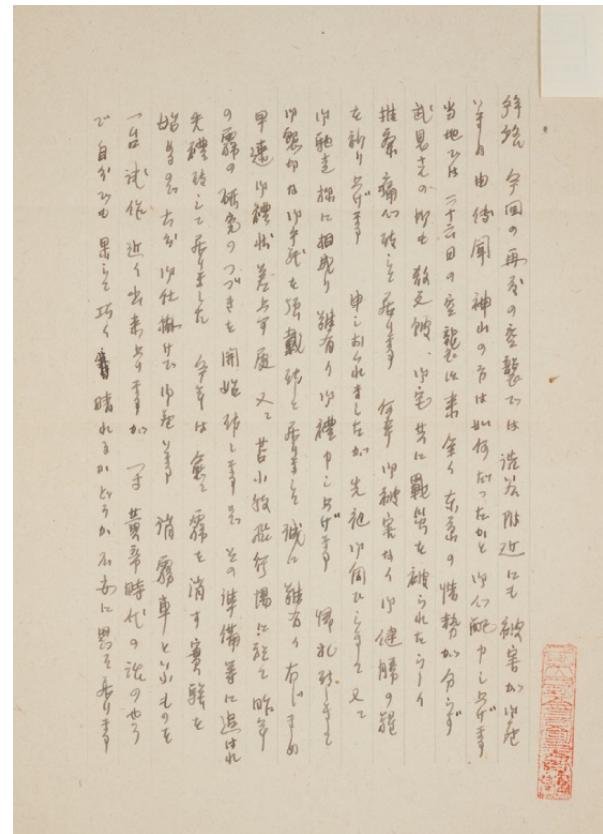 拝啓 今回の再度の空襲では渋谷附近にも被害が御座
いました由傳聞 神山の方は如何だったかと御心配申し上げます
当地では二十六日の空襲以来全く東京の情勢が分らず
武見さんの所も教文館、御宅共に戰災を被られたらしく
推察痛心致して居ります 何卒御被害なく御健勝の程
を祈り上げます 申しおくれましたが先旬御伺ひしまして又々
御馳走様に相成り難有く御禮申し上げます 帰札致しまして
御懇切な御手紙を頂戴致して居りまして誠に難有く存じました
早速御禮状差上げ度 又々苫小牧飛行場に於て昨年
の霧の研究のつづきを開始致しますので その準備等に追はれ
失禮致して居りました 今年は愈々霧を消す實験を
始めるので大分御仕掛けで御座います 消霧車といふものを
一台試作近く出来上りますが 一寸黄帝時代の話のやう
で自分でも果して巧く晴れるかどうか不安に思って居ります